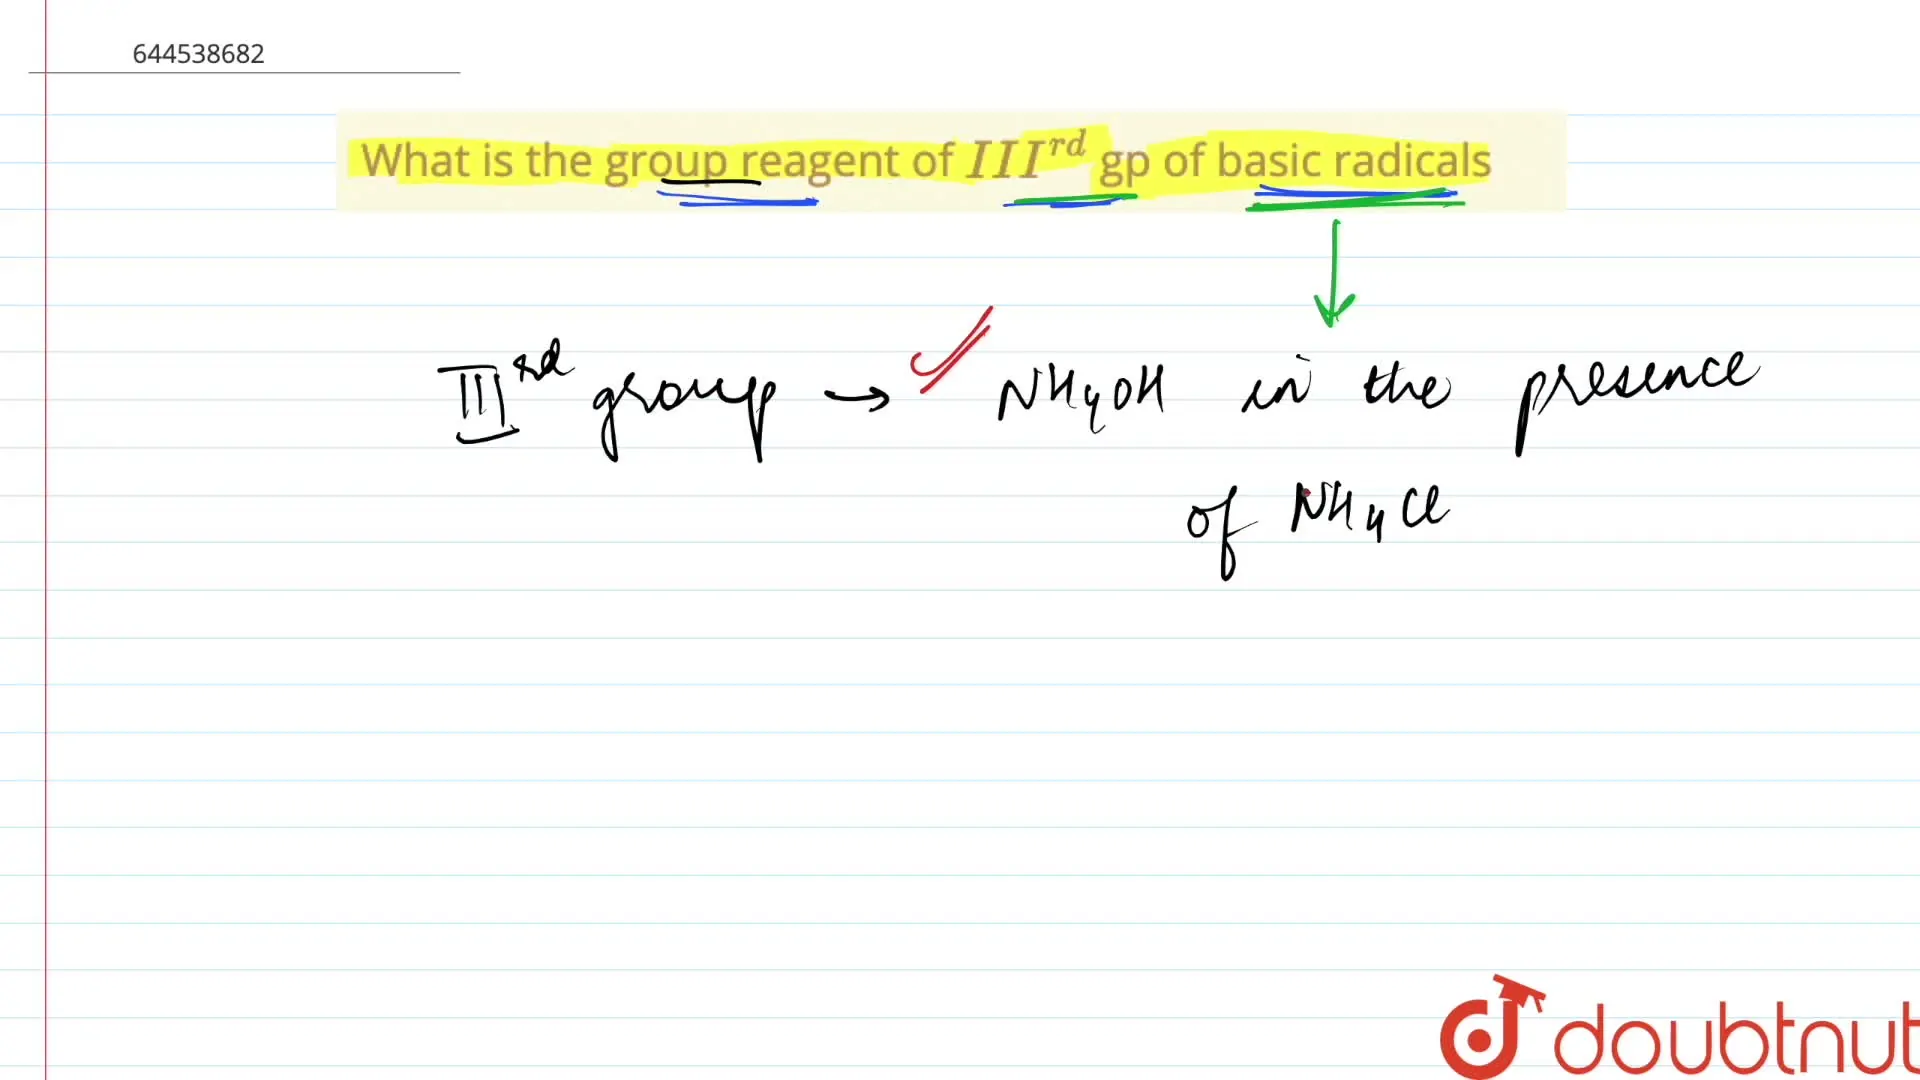 644538682
What is the group reagent of III^rd gp of basic radicals
III^rd group → NH4OH in the presence
of NH4Cl
doubtnut